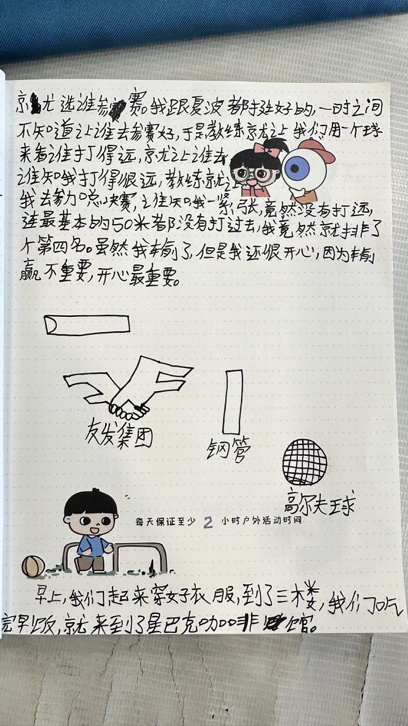 京尤选谁参赛。我跟夏波都挺好的,一时之间
不知道让谁去参赛好,于是教练京尤让我们用一个球
来看谁打得远,京尤让谁去
谁知我打得很远,教练京尤让
我去参加总决赛,谁知我一紧张,竟然没有打远,
连最基本的50米都没有打过去,我竟然就排了
个第四名。虽然我输了,但是我还很开心,因为输
赢不重要,开心最重要。
友发集团
钢管
高尔夫球
每天保证至少 2 小时户外活动时间
早上,我们起来穿好衣服,到了三楼,我们吃
完早饭,就来到了星巴克咖啡馆。